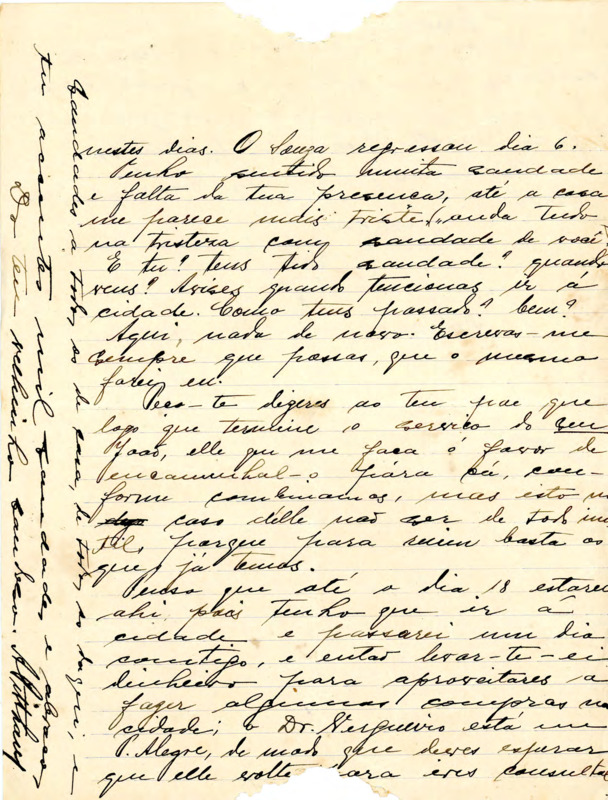 nestes dias. O Souza regressou dia 6.
Tenho sentido muita saudade
e falta da tua presença, até a casa
me parece mais triste, anda tudo
na tristeza com saudade de você.
E tu? tens tido saudade? quando
vens? Avises quando tencionas ir á
cidade. Como tens passado? bem?
Aqui, nada de novo. Escrevas-me
sempre que possas, que o mesmo
farei eu.
Peço-te digeres ao teu pae que
logo que termine o serviço do seu
João, elle que me faça o favor de
encaminhal-o pára cá, con-
forme combinamos, mas isto no
caso delle não ser de todo inu
til, porque para ruim basta os
que já temos.
Penso que até o dia 18 estarei
ahi pois tenho que ir á
cidade e passarei um dia
comtigo, e então levar-te-ei
dinheiro para aproveitares a
fazer algumas compras na
cidade; o Dr. Vergueiro está em
P. Alegre, de modo que deves esperar
que elle volte para ires consultar
Saudades a todos os de casa, de todos os daqui, e
tu acceites mil saudades e abraços
Do teu velhinho